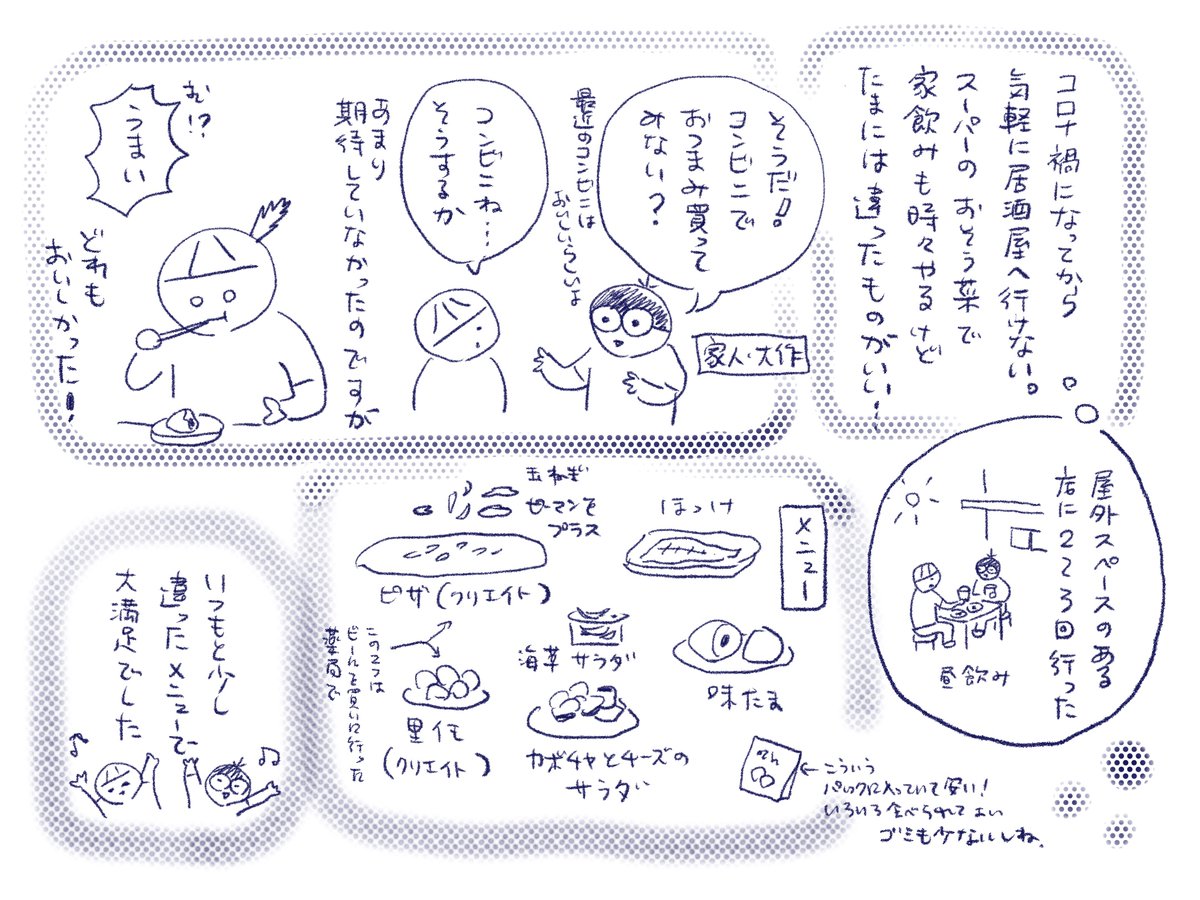 コロナ禍になってから
気軽に居酒屋へ行けない。
スーパーのおそう菜で
家飲みも時々やるけど
たまには違ったものがいい…
屋外スペースのある
店に2て3回行った
昼飲み
そうだ!
コンビニで
おつまみ買って
みない?
家人・大作
最近のコンビニは
おいしいらしいよ
コンビニね…
そうするか
あまり
期待していなかったのですが
む!?
うまい
どれも
おいしかったー!
メニュー
ほっけ
玉ねぎ
ピーマンを
プラス
ピザ(クリエイト)
味たま
海草サラダ
カボチャとチーズの
サラダ
里イモ
(クリエイト)
この2つは
ビールを買いに行った
薬局で
こういう
パックに入っていて安い!
いろいろ食べられてよい
ゴミも少ないしね、
いつもと少し
違ったメニューで
大満足でした